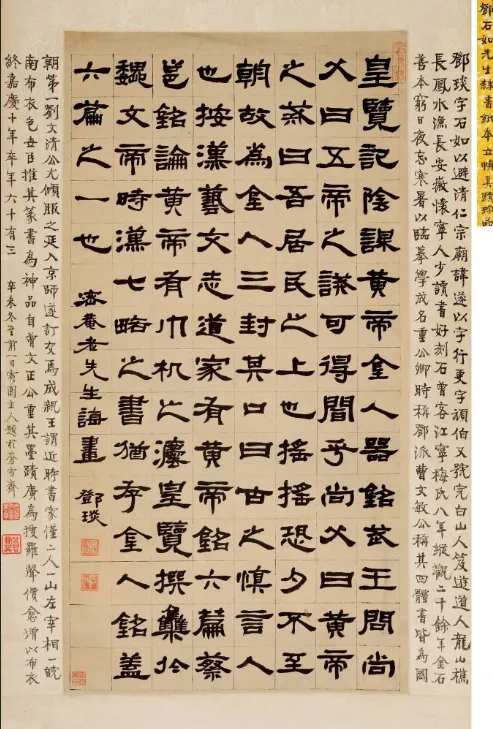 鄧石如先生隸書紙本立幀真蹟珍品
鄧琰字石如以避清仁宗廟諱遂以字行更字頑伯又號完白山人笈遊道人龍山樵
長鳳水漁長安徽懷寧人少讀書好刻石曾客江寧梅氏八年縱觀二十餘年金石
善本窮日夜忘寒暑以臨摹學成名重公卿時稱鄧派曹文敏公稱其四體書皆為國
皇覽記陰謀黃帝金人器銘武王問尚
父曰五帝之誡可得聞乎尚父曰黃帝
之蒸曰吾居民之上也搖搖恐夕不至
朝故為金人三封其口曰古之慎言人
也按漢藝文志道家有黃帝銘六篇蔡
邕銘論黃帝有巾机之灋皇覽撰集於
魏文帝時漢七略之書猶存金人銘蓋
六篇之一也
菴老先生誨畫 鄧琰
朝第一劉文清公尤傾服之延入京師遂訂交焉成親王謂近時書家僅二人一山左宰相一皖
南布衣包世臣推其篆書為神品自曾文正公重其墨蹟廣為搜羅聲價愈以布衣
終嘉慶十年卒年六十有三 辛未冬至前一日寄園主人題於蒼雪齋